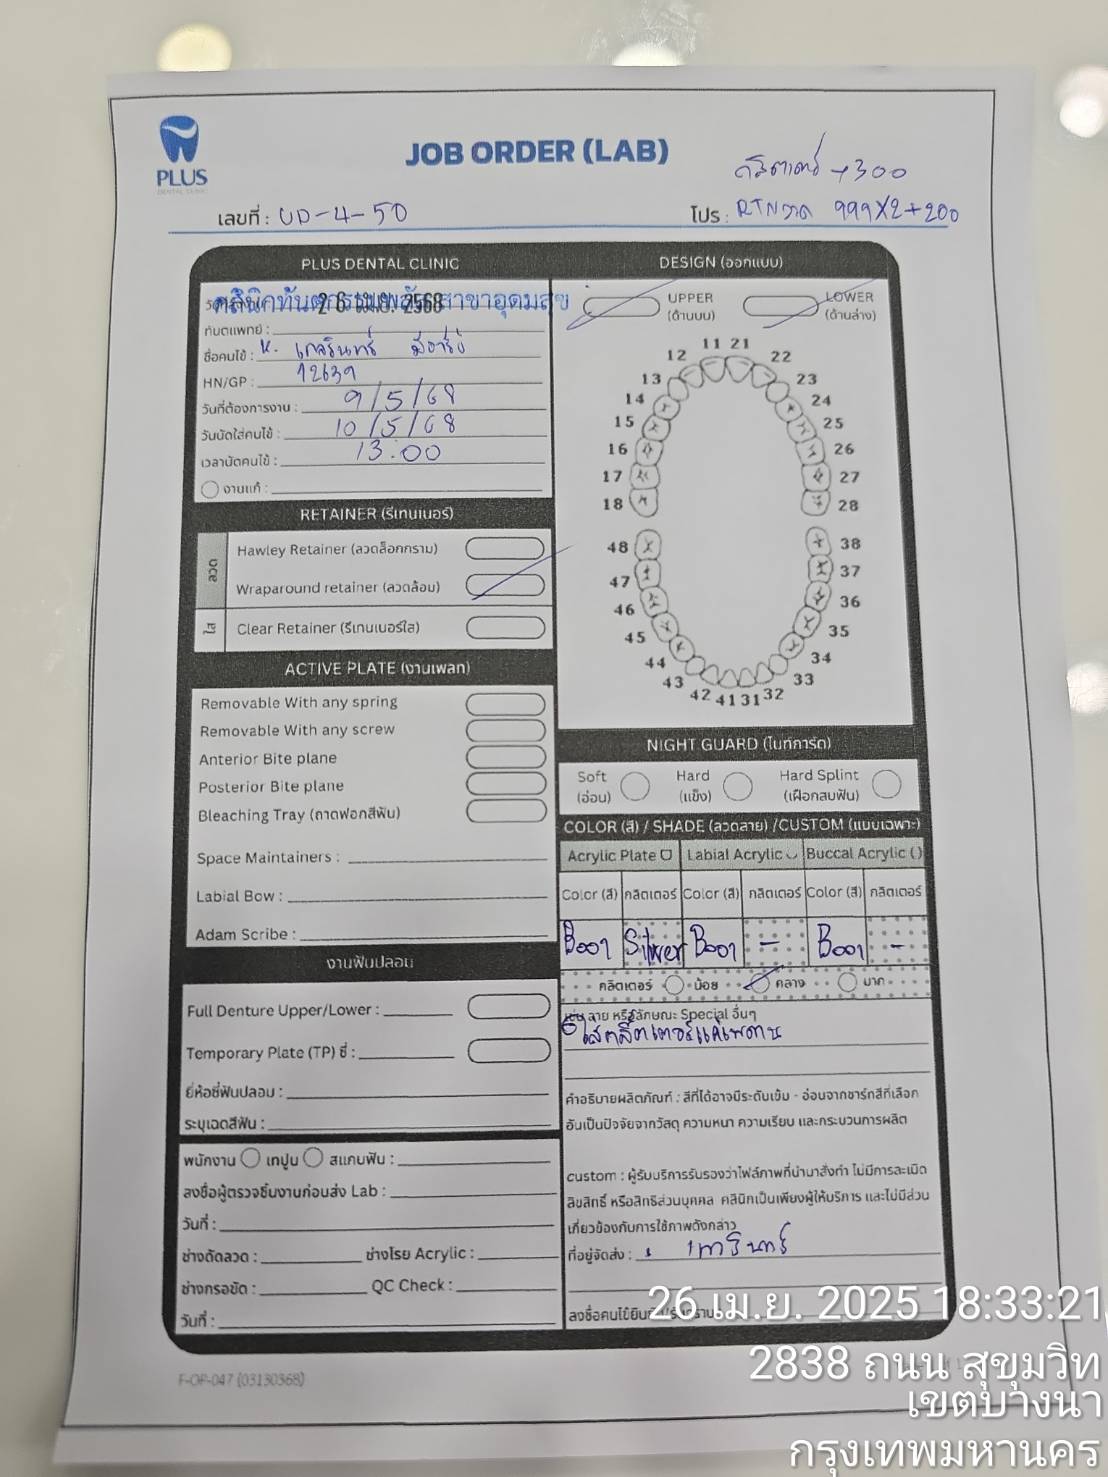 PLUS
DENTAL CLINIC
JOB ORDER (LAB)
→300
เลขที่ : UD-4-50
โปร : RTNลวด 999X2+200
PLUS DENTAL CLINIC
คลินิกทันตกรรมพลัส สาขาอุดมสุข
26 เม.ย. 2568
ทันตแพทย์ :
ชื่อคนไข้ : K.
HN/GP : 12639
วันที่ต้องการงาน : 9/5/68
วันนัดใส่คนไข้ : 10/5/68
เวลานัดคนไข้ : 13.00
งานแก้ :
RETAINER (รีเทนเนอร์)
ลวด
Hawley Retainer (ลวดล็อกกราม)
Wraparound retainer (ลวดล้อม)
ใส
Clear Retainer (รีเทนเนอร์ใส)
ACTIVE PLATE (งานเพลท)
Removable With any spring
Removable With any screw
Anterior Bite plane
Posterior Bite plane
Bleaching Tray (ถาดฟอกสีฟัน)
Space Maintainers :
Labial Bow :
Adam Scribe :
งานฟันปลอม
Full Denture Upper/Lower :
Temporary Plate (TP) ซี่ :
ยี่ห้อซี่ฟันปลอม :
ระบุเฉดสีฟัน :
พนักงาน เทปูน สแกนฟัน :
ลงชื่อผู้ตรวจชิ้นงานก่อนส่ง Lab :
วันที่ :
ช่างดัดลวด : ช่างโรย Acrylic :
ช่างกรอขัด : QC Check :
วันที่ :
F-OP-047 (03130368)
DESIGN (ออกแบบ)
UPPER
(ด้านบน)
LOWER
(ด้านล่าง)
11 21
12 22
13 23
14 24
15 25
16 26
17 27
18 28
48 38
47 37
46 36
45 35
44 34
43 33
42 41 31 32
NIGHT GUARD (ไนท์การ์ด)
Soft
(อ่อน)
Hard
(แข็ง)
Hard Splint
(เฝือกสบฟัน)
COLOR (สี) / SHADE (ลวดลาย) /CUSTOM (แบบเฉพาะ)
Acrylic Plate Labial Acrylic Buccal Acrylic ()
Color (สี) กลิตเตอร์ Color (สี) กลิตเตอร์ Color (สี) กลิตเตอร์
B001 Silver B001 - B001 -
กลิตเตอร์ น้อย กลาง มาก
เช่น ลาย หรือลักษณะ Special อื่นๆ
ใส่กลิตเตอร์แค่เพดาน
คำอธิบายผลิตภัณฑ์ : สีที่ได้อาจมีระดับเข้ม - อ่อนจากชาร์ทสีที่เลือก
อันเป็นปัจจัยจากวัสดุ ความหนา ความเรียบ และกระบวนการผลิต
custom : ผู้รับบริการรับรองว่าไฟล์ภาพที่นำมาสั่งทำ ไม่มีการละเมิด
ลิขสิทธิ์ หรือสิทธิส่วนบุคคล คลินิกเป็นเพียงผู้ให้บริการ และไม่มีส่วน
เกี่ยวข้องกับการใช้ภาพดังกล่าว
ที่อยู่จัดส่ง :
26 เม.ย. 2025 18:33:21
2838 ถนน สุขุมวิท
เขตบางนา
กรุงเทพมหานคร